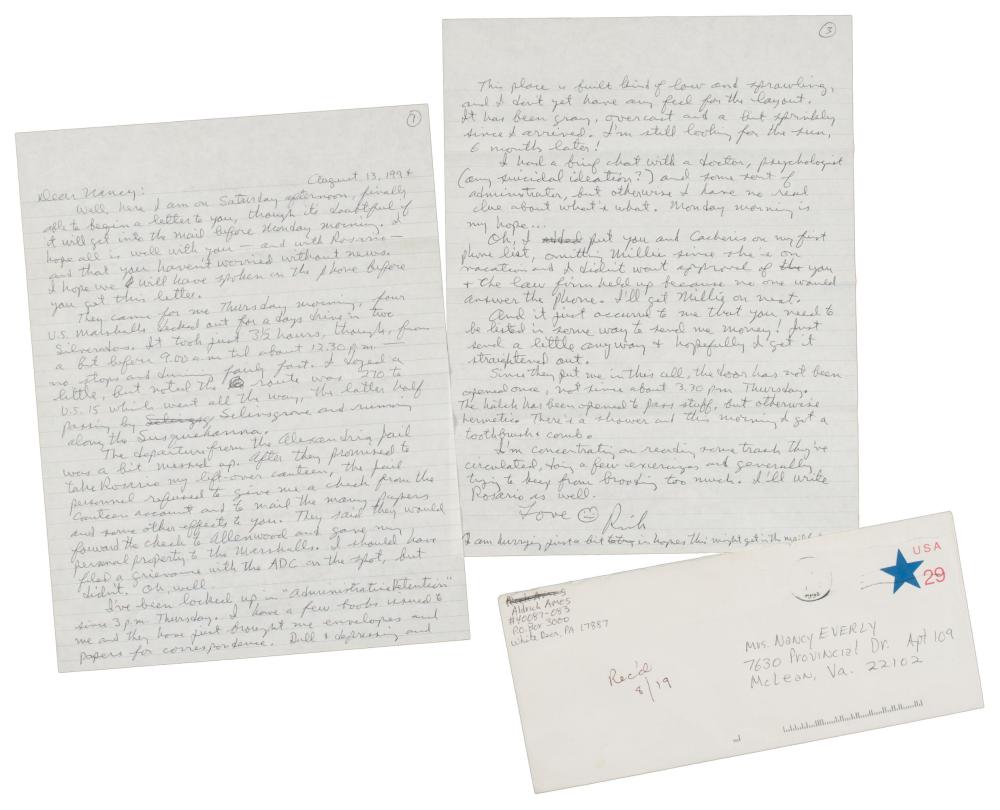 1
August, 13, 1994
Dear Nancy:
Well, here I am on Saturday afternoon, finally
able to begin a letter to you, though its doubtful if
it will get into the mail before Monday morning. I
hope all is well with you — and with Rosario —
and that you haven't worried without news.
I hope we will have spoken on the phone before
you get this letter.
They came for me Thursday morning, four
U.S. Marshalls decked out for a days drive in two
Silverados. It took just 3½ hours, though, from
a bit before 9:00 a.m. til about 12:30 p.m. —
no stops and driving fairly fast. I dozed a
little, but noted the route was 270 to
U.S. 15 which went all the way, the latter half
passing by Selinsgrove and running
along the Susquehanna.
The departure from the Alexandria jail
was a bit messed up. After they promised to
take Rosario my left-over canteen, the jail
personnel refused to give me a check from the
canteen account and to mail the many papers
and some other effects to you. They said they would
forward the check to Allenwood and gave my
personal property to the Marshalls. I should have
filed a grievance with the ADC on the spot, but
didn't. Oh, well.
I've been locked up in "Administrative Detention"
since 3 p.m. Thursday. I have a few books issued to
me and they have just brought me envelopes and
papers for correspondence. Dull & depressing and
3
This place is built kind of low and sprawling,
and I don't yet have any feel for the layout.
It has been gray, overcast and a bit sprinkly
since I arrived. I'm still looking for the sun,
6 months later!
I had a brief chat with a doctor, psychologist
(any suicidal ideation?) and some sort of
administrator, but otherwise I have no real
clue about what's what. Monday morning is
my hope...
Oh, I added put you and Cacheris on my first
phone list, omitting Millie since she is on
vacation and I didn't want approval of the you
& the law firm held up because no one would
answer the phone. I'll get Millie on next.
And it just occurred to me that you need to
be listed in some way to send me money! Just
send a little anyway & hopefully I get it
straightened out.
Since they put me in this cell, the door has not been
opened once, not since about 3:30 pm Thursday.
The hatch has been opened to pass stuff, but otherwise
hermetic. There's a shower and this morning I got a
toothbrush & comb.
I'm concentrating on reading some trash they've
circulated, doing a few exercizes and generally
trying to keep from brooding too much. I'll write
Rosario as well.
Love
Rick
I am hurrying just a bit in hopes this might get in the mail
Aldrich Ames
#40087-083
P.O. Box 3000
White Deer, PA 17887
USA
29
Rec'd
8/19
Mrs. Nancy EVERLY
7630 Provincial Dr. Apt 109
McLean, Va. 22102